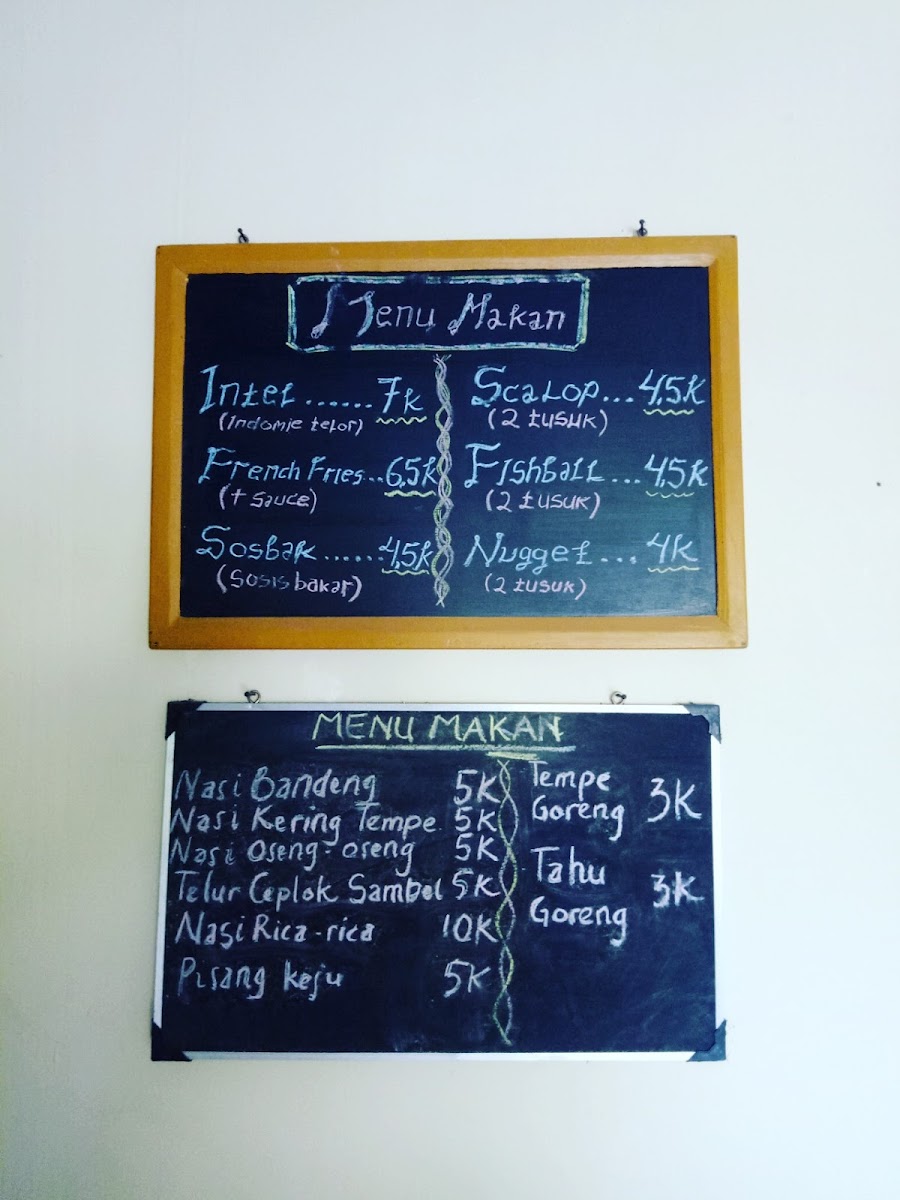 Menu Makan
Intel ...... 7K
(Indomie telor)
French Fries... 6,5K
(+ sauce)
Sosbak ...... 4,5K
(Sosis bakar)
Scalop... 4,5K
(2 tusuk)
Fishball... 4,5K
(2 tusuk)
Nugget... 4K
(2 tusuk)
MENU MAKAN
Nasi Bandeng 5K
Nasi Kering Tempe 5K
Nasi Oseng-oseng 5K
Telur Ceplok Sambel 5K
Nasi Rica-rica 10K
Pisang keju 5K
Tempe
Goreng 3K
Tahu
Goreng 3K